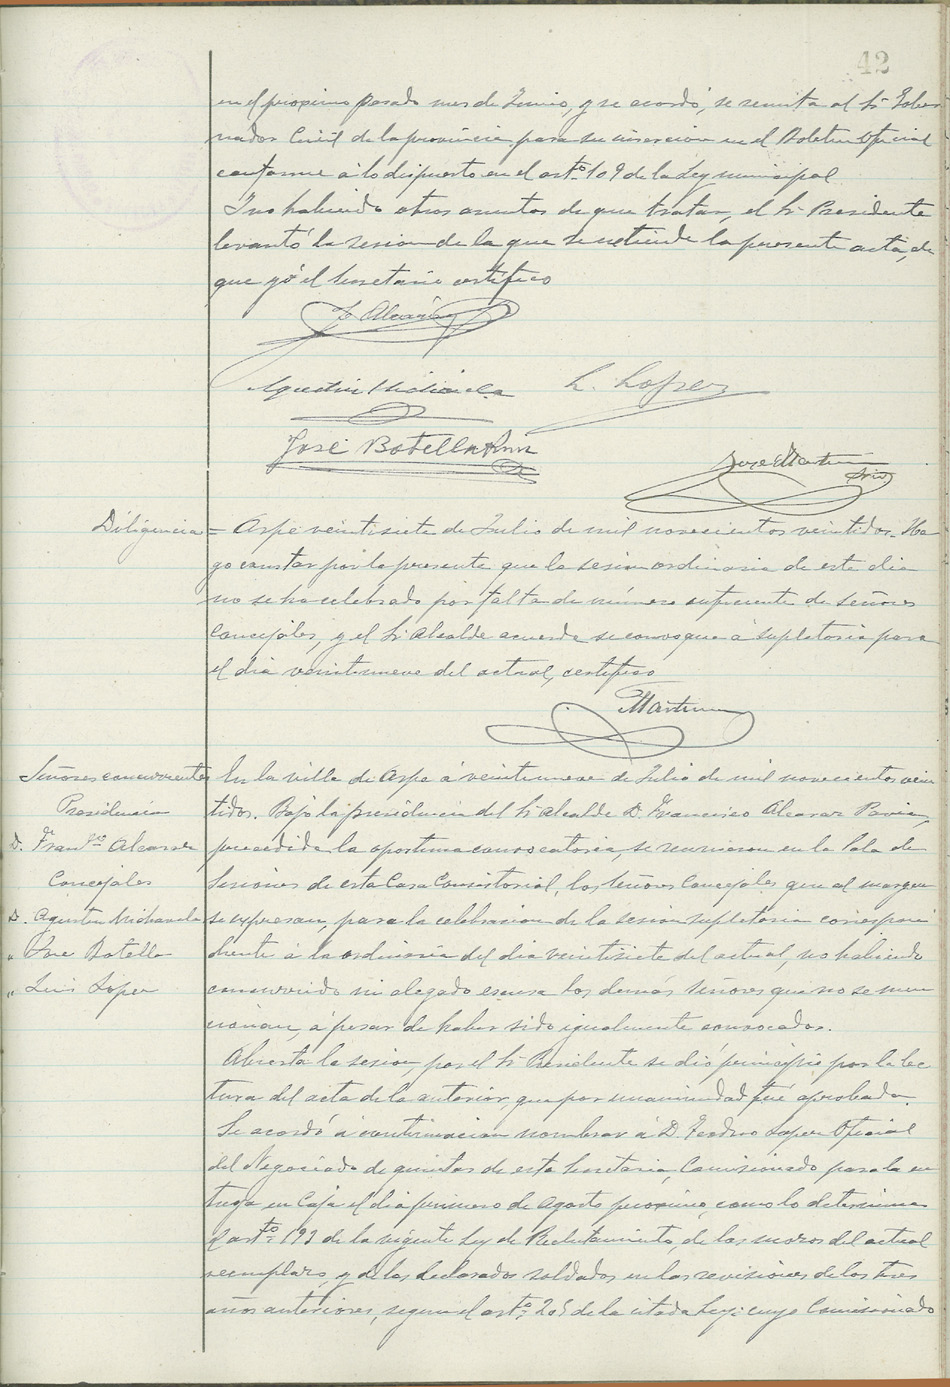 42
en el proximo pasado mes de Junio, y se acordó, se remita al Sr. Gober
nador Civil de la provincia para su insercion en el Boletin Oficial
conforme á lo dispuesto en el artº 109 de la Ley municipal
Y no habiendo otros asuntos de que tratar, el Sr. Presidente
levantó la sesion de la que se extiende la presente acta, de
que yó el Secretario certifico
F. Alcaraz
Agustin Michavila L. Lopez
José Botella
José Martin
Srio
Diligencia = Aspe veintisiete de Julio de mil novecientos veintidos. Ha
go constar por la presente que la sesion ordinaria de este dia
no se ha celebrado por falta de número suficiente de señores
Concejales, y el Sr. Alcalde acuerda se convoque á supletoria para
el dia veintinueve del actual, certifico
Martin
Señores concurrentes
Presidencia
D. Franco Alcaraz
Concejales
D. Agustin Michavila
" Jose Botella
" Luis Lopez
En la villa de Aspe á veintinueve de Julio de mil novecientos vein
tidos. Bajo la presidencia del Sr. Alcalde D. Francisco Alcaraz Pavia,
precedida la oportuna convocatoria, se reunieron en la Sala de
Sesiones de esta Casa Consistorial, los señores Concejales que al margen
se expresan, para la celebracion de la sesion supletoria correspon
diente á la ordinaria del dia veintisiete del actual, no habiendo
concurrido ni alegado escusa los demás señores que no se men
cionan, á pesar de haber sido igualmente convocados.
Abierta la sesion, por el Sr. Presidente se dió principio por la lec
tura del acta de la anterior, que por unanimidad fué aprobada.
Se acordó á continuacion nombrar á D. Lopez Oficial
del Negociado de quintas de esta Secretaria, Comisionado para la en
trega en Caja el dia primero de Agosto proximo, como lo determina
el artº 193 de la vigente Ley de Reclutamiento, de los mozos del actual
reemplazo, y de los declarados soldados en las revisiones de los tres
años anteriores, segun el artº 205 de la citada Ley; cuyo Comisionado